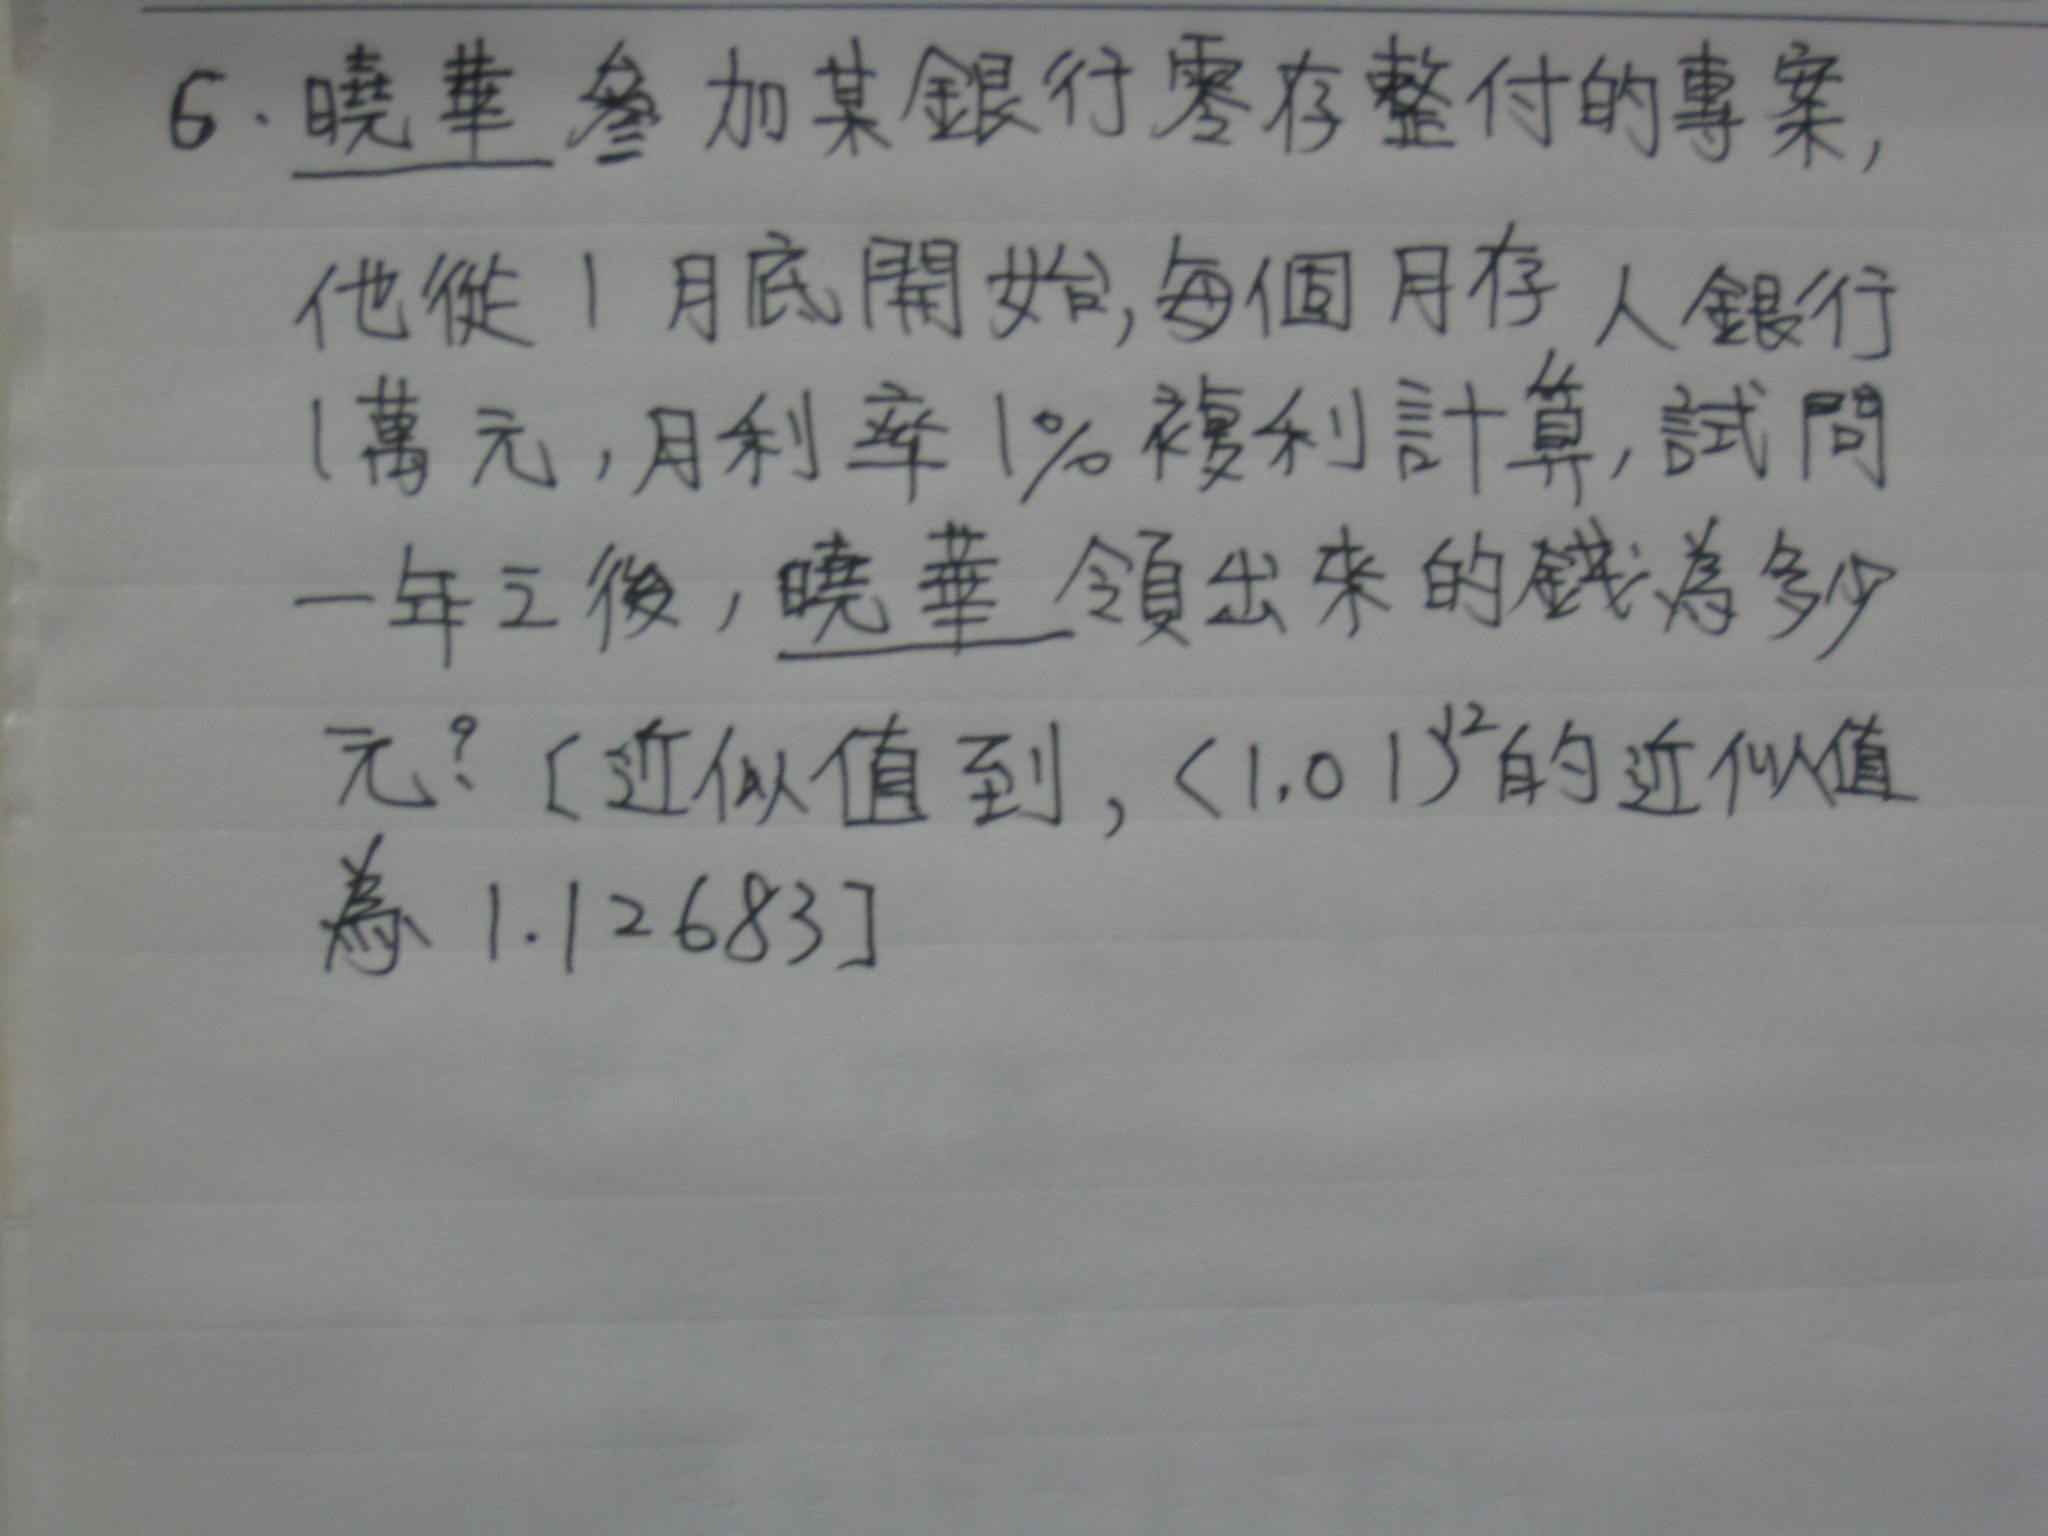 6. 曉華參加某銀行零存整付的專案,
他從1月底開始,每個月存人銀行
1萬元,月利率1%複利計算,試問
一年之後,曉華領出來的錢為多少
元?[近似值到,<1.01)¹²的近似值
為1.12683]